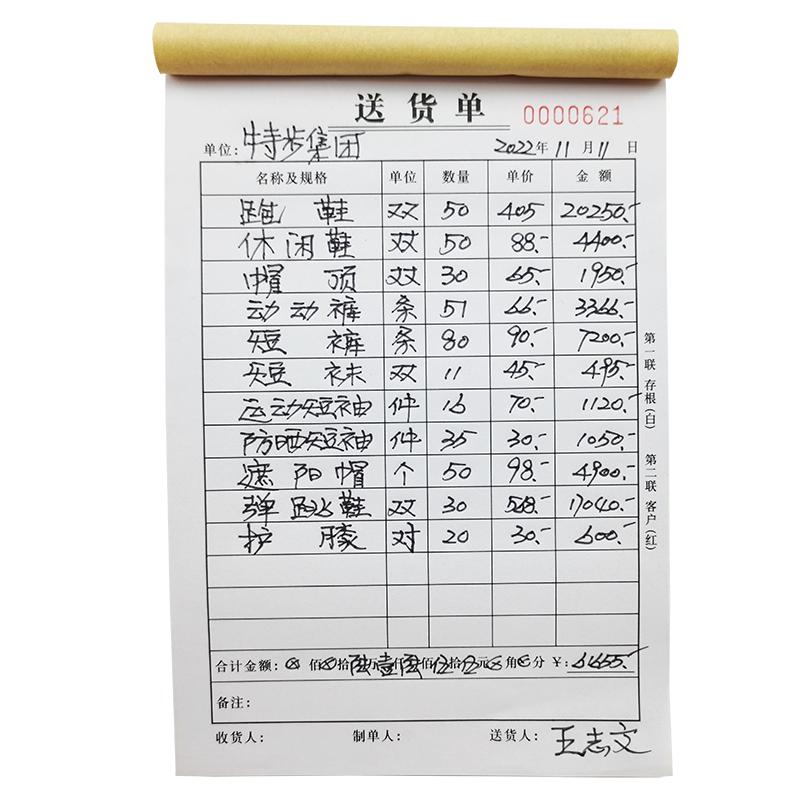 送货单 0000621
单位: 特步集团 2022年11月11日
名称及规格 单位 数量 单价 金额
跑鞋 双 50 405 20250.-
休闲鞋 双 50 88.- 4400.-
帽顶 双 30 65.- 1950.-
动动裤 条 51 66.- 3366.-
短裤 条 80 90.- 7200.-
短袜 双 11 45.- 495.-
运动短袖 件 16 70.- 1120.-
防晒短袖 件 35 30.- 1050.-
遮阳帽 个 50 98.- 4900.-
弹跳鞋 双 30 568.- 17040.-
护膝 对 20 30.- 600.-
合计金额: 佰 拾 万 仟 佰 拾 元 角 分 ¥:
备注:
收货人: 制单人: 送货人: 王志文
第一联 存根(白) 第二联 客户(红)